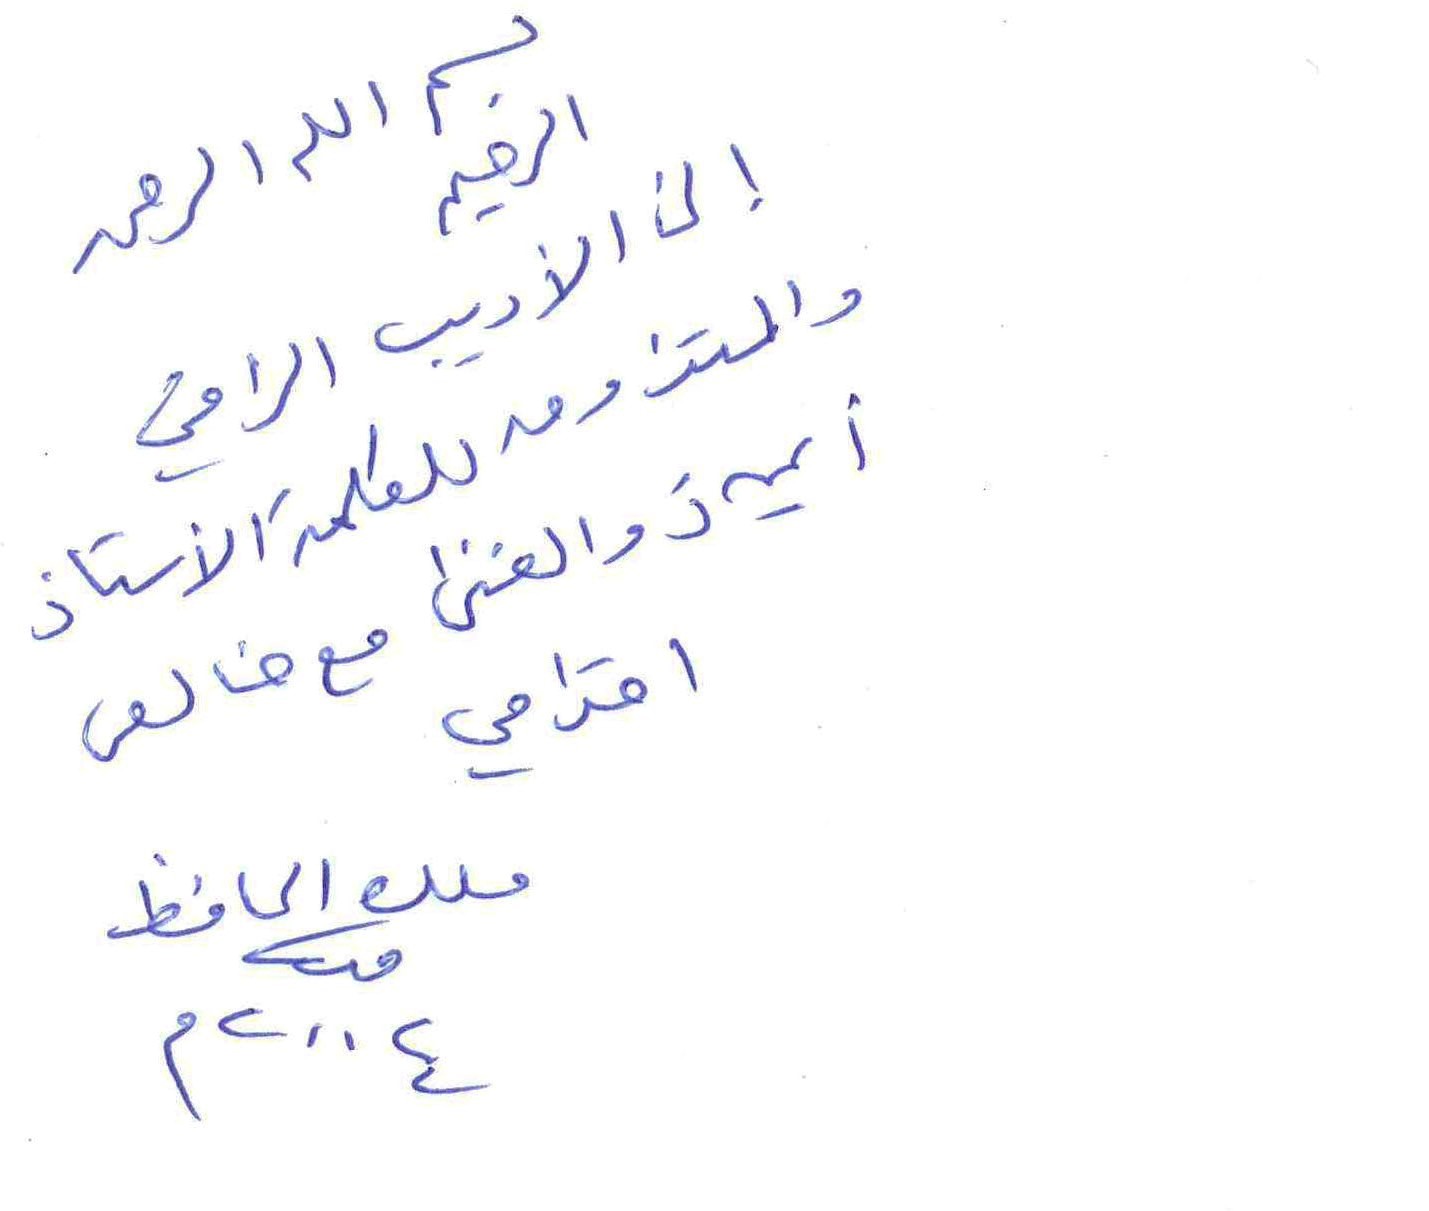 بسم الله الرحمن
الرحيم
إلى الأديب الراقي
والمتذوق للكلمة الأستاذ
أيمن ذوالغنى
مع خالص
احترامي
ملك الحافظ
مكة
٢٠٠٤م